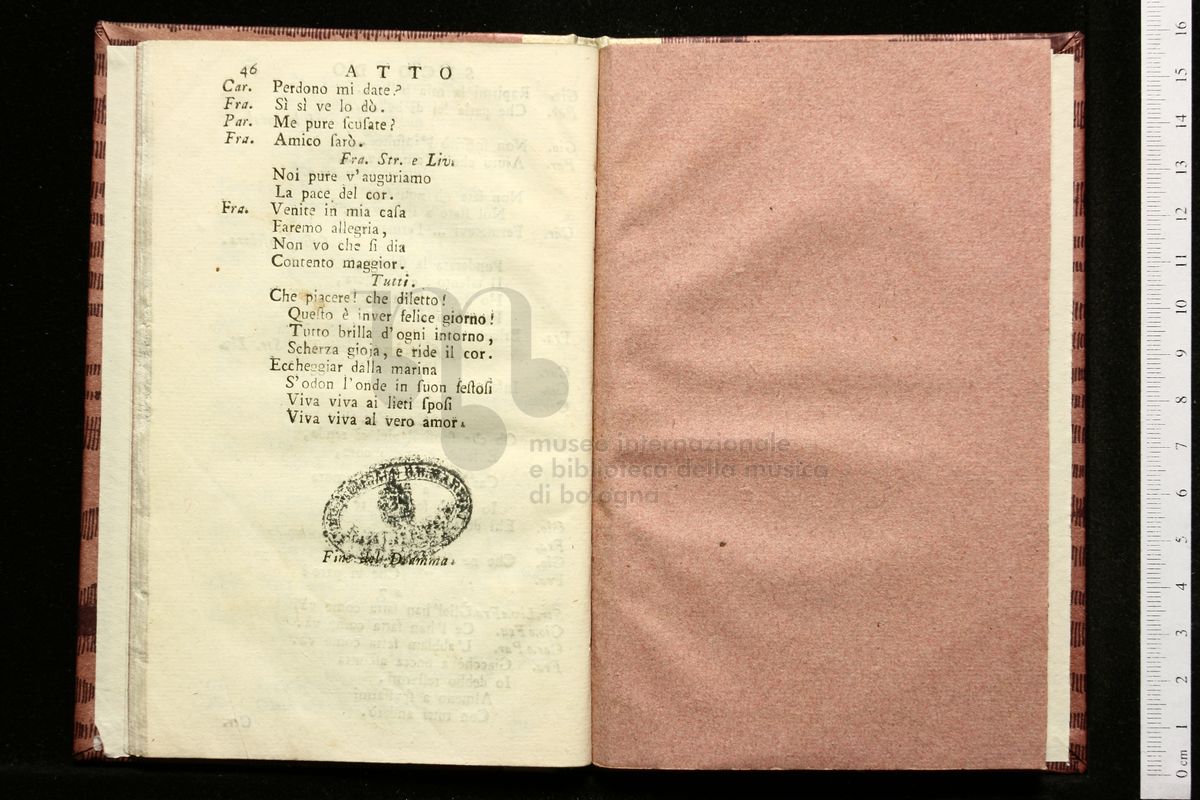 46
A T T O
Car. Perdono mi date?
Fra. Sì sì ve lo dò.
Par. Me pure ſcuſate?
Fra. Amico ſarò.
Fra. Str. e Liv.
Noi pure v'auguriamo
La pace del cor.
Fra. Venite in mia caſa
Faremo allegria,
Non vo che ſi dia
Contento maggior.
Tutti.
Che piacere! che diletto!
Queſto è inver felice giorno!
Tutto brilla d'ogni intorno,
Scherza gioja, e ride il cor.
Eccheggiar dalla marina
S'odon l'onde in ſuon feſtoſi
Viva viva ai lieti ſpoſi
Viva viva al vero amor.
Fine del Dramma.
museo internazionale
e biblioteca della musica
di bologna
0 cm 1 2 3 4 5 6 7 8 9 10 11 12 13 14 15 16